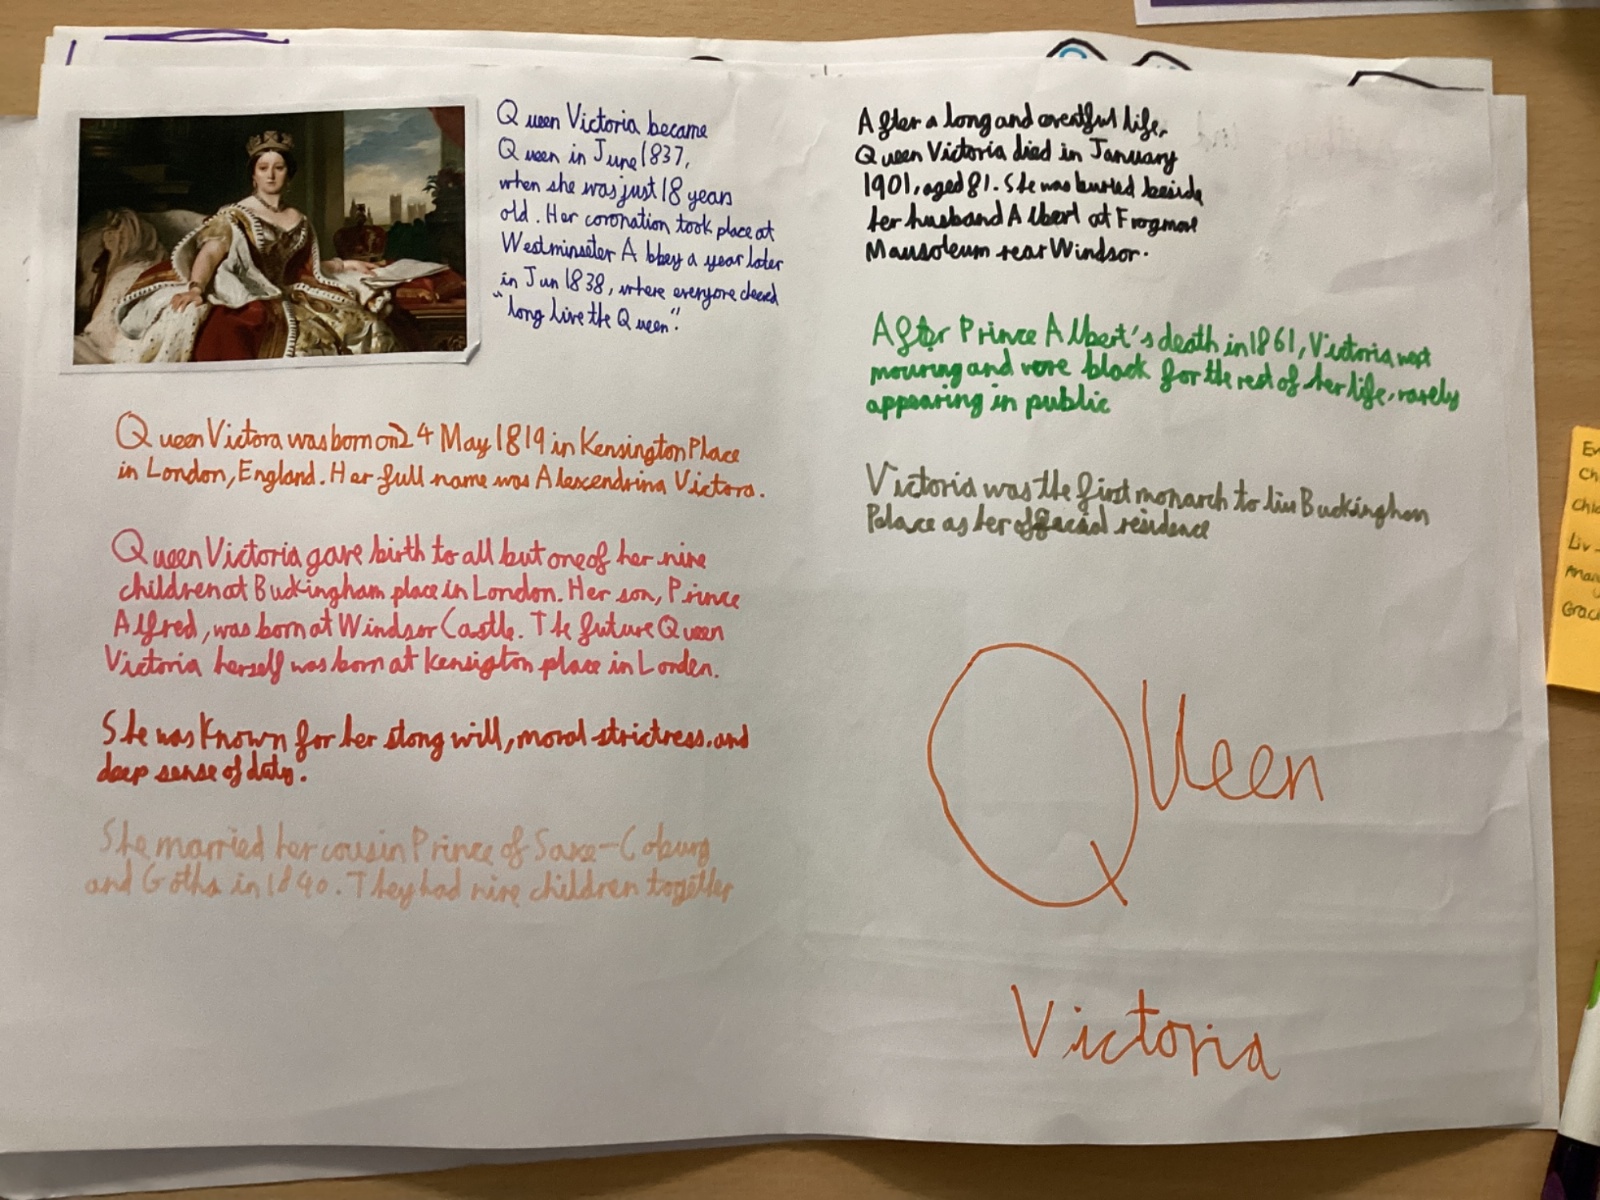 Queen Victoria became
Queen in June 1837,
when she was just 18 years
old. Her coronation took place at
Westminseter Abbey a year later
in Jun 1838, where everyone cheered
"long live the Queen".
Queen Victora was born on 24 May 1819 in Kensington Place
in London, England. Her full name was Alexendrina Victora.
Queen Victoria gave birth to all but one of her nine
children at Buckingham place in London. Her son, Prince
Alfred, was born at Windsor Castle. The future Queen
Victoria herself was born at Kensigton place in Lorden.
She was known for her stong will, moral strictress, and
deep sense of duty.
She married her cousin Prince of Saxe-Coburg
and Gotha in 1840. They had nine children together
After a long and eventful life,
Queen Victoria died in January
1901, aged 81. She was buried beside
her husband Albert at Frogmore
Mausoleum near Windsor.
After Prince Albert's death in 1861, Victoria went
mouring and wore black for the rest of her life, rarely
appearing in public
Victoria was the first monarch to live Buckingham
Palace as her offacial residence
Queen
Victoria
Liv